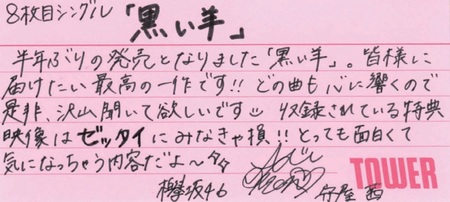 8枚目シングル「黒い羊」
半年ぶりの発売となりました「黒い羊」。皆様に
届けたい最高の一作です!! どの曲も心に響くので
是非、沢山聞いて欲しいです 収録されている特典
映像はゼッタイにみなきゃ損!! とっても面白くて
気になっちゃう内容だよ〜
欅坂46 守屋茜
TOWER